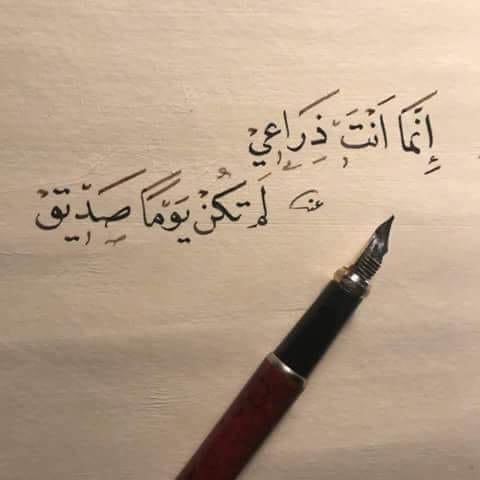 إِنَّمَا اَنْتَ ذِرَاعِيْ
لَمْ تَكُنْ يَوْمًا صَدِيقْ